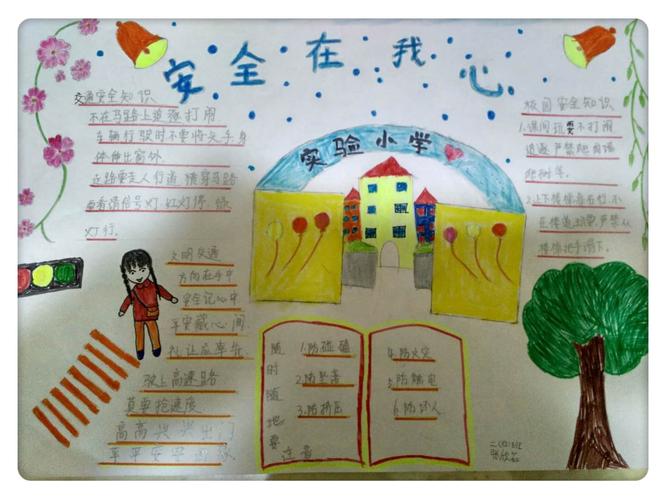 安全在我心
实验小学
交通安全知识
不在马路上追逐打闹
车辆行驶时不要将头手身
体伸出窗外
走路要走人行道 横穿马路
要看清信号灯.红灯停 绿
灯行.
文明交通
方向在手中
安全记心中
平安藏心间
礼让应率先
驶上高速路
莫要抢速度
高高兴兴出门
平平安安回家
校园安全知识
1.课间玩 不打闹
追逐.严禁爬
树等.
2.上下楼梯靠右行.不
在楼道 严禁从
楼梯 滑下.
随时随地要注意
1.防碰磕
2.防坠
3.防挤压
4.防火灾
5.防触电
6.防坏人